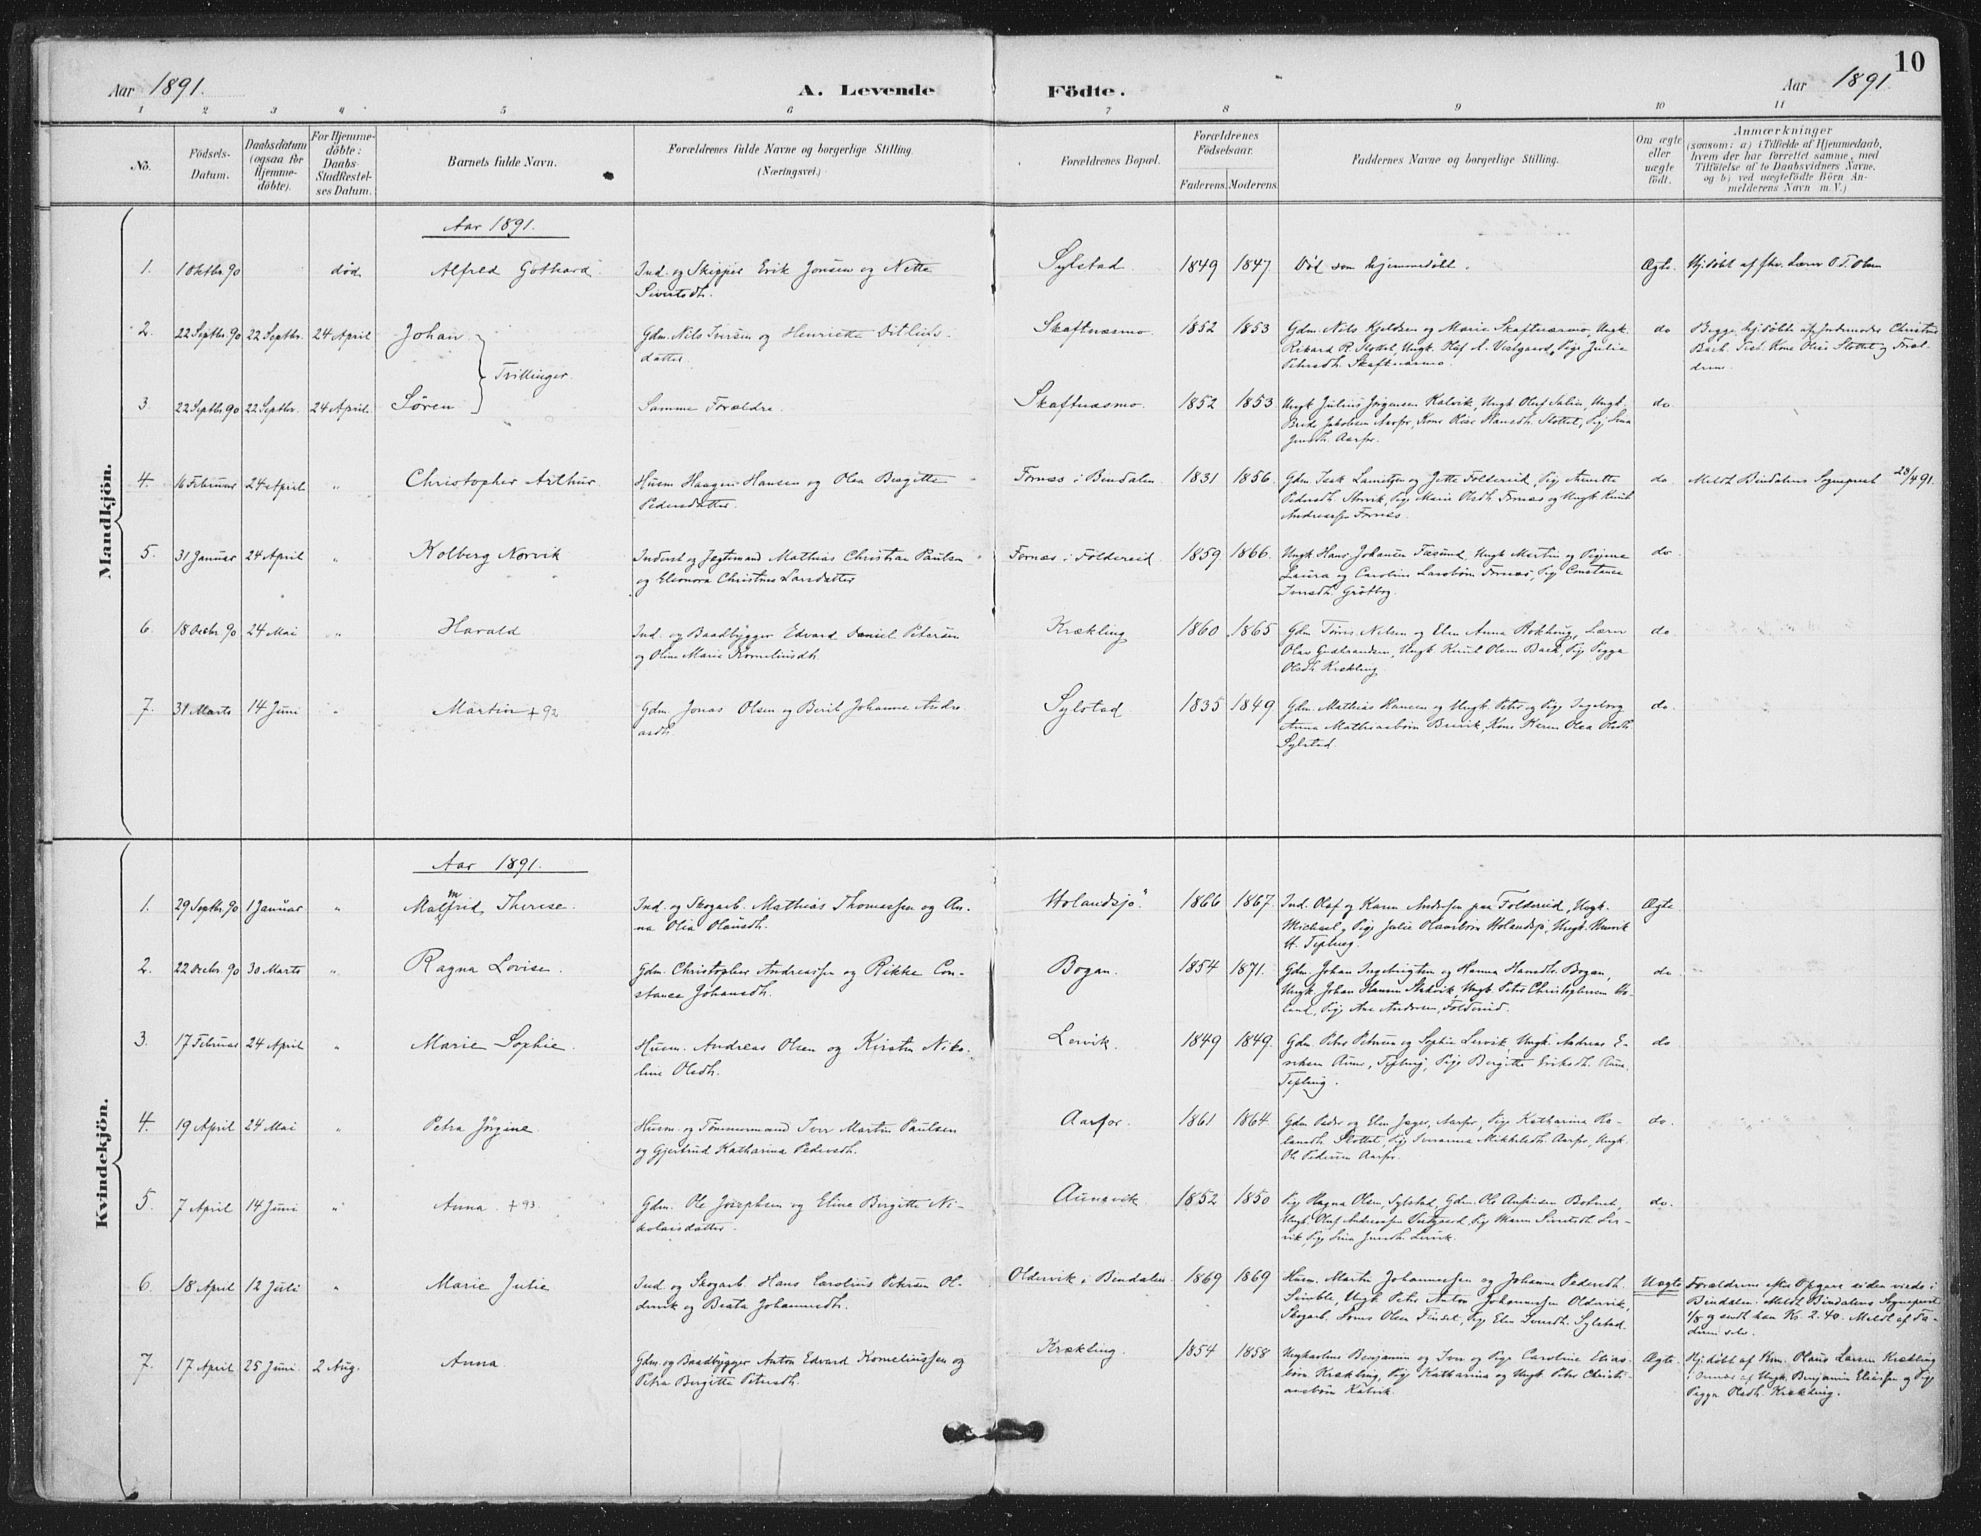 Aar 1891.
A. Levende
Födte.
Aar 1891.
10
1 2 3 4 5 6 7 8 9 10 11
No.
Födsels-Datum.
Daabsdatum (ogsaa for Hjemme-döbte).
For Hjemme-döbte: Daabs-Stadfæstel-ses Datum.
Barnets fulde Navn.
Forældrenes fulde Navne og borgerlige Stilling.
(Næringsvei.)
Forældrenes Bopæl.
Forældrenes Födselsaar.
Faderens. Moderens.
Faddernes Navne og borgerlige Stilling.
Om ægte eller uægte födt.
Anmærkninger
(saasom: a) i Tilfælde af Hjemmedaab,
hvem der har forrettet samme, med
Tilföielse af to Daabsvidners Navne.
og b) ved uægtefödte Börn An-
melderens Navn m. V.)
Mandkjön.
Aar 1891.
1. 1 Oktbr. 90 død. Alfred Gothard. Ind. og Skipper Erik Jonsen og Nette
Sivertsdtr.
Sylstad. 1849 1847 Død som hjemmedøbt. Ægte. Hj.døbt af fhv. Lærer O. T. Olsen
2. 22 Septbr. 90 22 Septbr. 24 April Johan Gdm. Nils Iversen og Henriette Ditlevs-
datter
Skaftnæsmo. 1852 1853 Gdm. Nils Kjeldsen og Marie Skaftnæsmo, Ungk.
Rikard R. Slottet, Ungk. Olaf A. Vestgaard, Pige Julie
Petersdtr. Skaftnæsmo.
do Begge hj.døbte af Jordemoder Christine
Bach. Test. Kone Oline Slottet og Foræl-
drene.
Tvillinger.
3. 22 Septbr. 90 22 Septbr. 24 April. Søren Samme Forældre. Skaftnæsmo. 1852 1853 Ungk. Julius Jørgensen Kalvik, Ungk. Oluf
Jakobsen Aarfor, Kone Hansdtr. Slottet, Pig. Lina
Jensdtr. Aarfor.
do.
4. 16 Februar 24 April " Christopher Arthur Husm. Haagen Hansen og Olea Bergitte
Pedersdatter.
Fornæs i Bindalen 1831 1856. Gdm. Isak Lauritzen og Jette Foldereid, Pige
Pedersdtr. Storvik, Pige Marie Olsdtr. Fornæs og Ungk.
Andreassen Fornæs.
do Meldt Bindalens Sognepræst 28/4 91.
5. 31 Januar 24 April " Kolberg Norvik Inderst og Jægtemand Mathias Christian Paulsen
og Eleonora Christine Larsdatter
Fornæs i Foldereid. 1859 1866. Ungk. Hans Johansen Faksund, Ungk. Martin og Pigerne
Laura og Caroline Larsbørn Fornæs, Pig. Constance
Iversdtr. Grøtbog.
do.
6. 18 Decbr. 90 24 Mai " Harald. Ind. og Baadbygger Edvard Daniel Petersen
og Oline Marie Korneliusdtr.
Krækling 1860 1865 Gdm. Tørris Nilsen og Elen Anna Rokkoug, Lærer
Olav Gulbrandsen, Ungk. Knut Olsen Bach, Pig. Pigga
Olsdtr. Krækling.
do
7. 31 Marts 14 Juni " Martin + 92 Gdm. Jonas Olsen og Berit Johanne Andre-
asdtr.
Sylstad 1835 1849 Gdm. Mathias Hansen og Ungk. Peter og Pige Ingeborg
Anna Mathiasbørn Brevik, Kone Karen Olea Olsdtr.
Sylstad.
do.
Kvindekjön.
Aar 1891.
1. 29 Septbr. 90 1 Januar " Malmfrid Therese. Ind. og Skogarb. Mathias Thomessen og An-
na Olia Olausdtr.
Holandsjø. 1866 1867. Ind. Olaf og Karen Andersen paa Foldereid, Ungk.
Michael og Pige Julie Olausbørn Holandsjø, Ungk. Henrik
H. Tepling.
Ægte
2. 22 Decbr. 90 30 Marts " Ragna Lovise. Gdm. Christopher Andreassen og Rikke Con-
stance Johansdtr.
Bogan. 1854 1871. Gdm. Johan Ingebrigtsen og Hanna Hansdtr. Bogan,
Ungk. Johan Hansen, Ungk. Peter Christophersen Ho-
land, Pige Ane Andersen, Foldereid.
do.
3. 17 Februar 24 April " Marie Sophie. Husm. Andreas Olsen og Kirstin Niko-
line Olsdtr.
Lervik. 1849 1849. Gdm. Peter Petersen og Sophie Lervik, Ungk. Andreas E-
riksen Aune, Tepling, Pige Bergitte Eriksdtr. Aune,
Tepling.
do
4. 19 April 24 Mai " Petra Jørgine. Husm. og Tømmermand Iver Martin Paulsen
og Gjertrud Katharina Pedersdtr.
Aarfor. 1861 1864. Gdm. Peder og Elen Jæger, Aarfor, Pige Katharina Ro-
landsdtr. Slottet, Pig. Mikkelsdtr. Aarfor, Ungk.
Ole Pedersen Aarfor.
do.
5. 7 April 14 Juni " Anna. + 93. Gdm. Ole Josephsen og Elina Bergitte Ni-
kolaisdatter.
Aunavik. 1852 1850 Pig. Ragna Olsen, Sylstad, Gdm. Ole
Ungk. Oluf Andreassen Vestgaard, Pig. Maren Sivertsdtr. Ler-
vik, Pig. Lina Jensdtr. Lervik.
do.
6. 18 April 12 Juli " Marie Julie Ind. og Skogarb. Hans Carolius Petersen Ol-
dervik og Beata Johannesdtr.
Oldervik i Bindalen. 1869 1869 Husm. Martin Johannessen og Johanne Pedersdtr.
Simble, Ungk. Peter Anton Johannessen Oldervik,
Skogarb. Olsen, Pig. Elen Iversdtr. Sylstad.
Uægte Forældrene efter Opgave siden viede i
Bindalen. Meldt Bindalens Sognepræst
1/8 og sendt ham Kr. 2.40. Meldt af Fa-
deren selv.
7. 17 April 25 Juni. 2 Aug. Anna Gdm. og Baadbygger Anton Edvard Korneliussen og
Petra Bergitte Petersdtr.
Krækling. 1854 1858 Ungkarlene Benjamin og Iver og Pige Caroline Elias-
børn Krækling, Pige Katharina og Ungk. Peter Christi-
ansbørn Kalvik.
Ægte. Hj.døbt af Olaus Larsen Krækling
Ungk. Benjamin Eliassen og Pige
Pigga Olsdtr. Krækling.